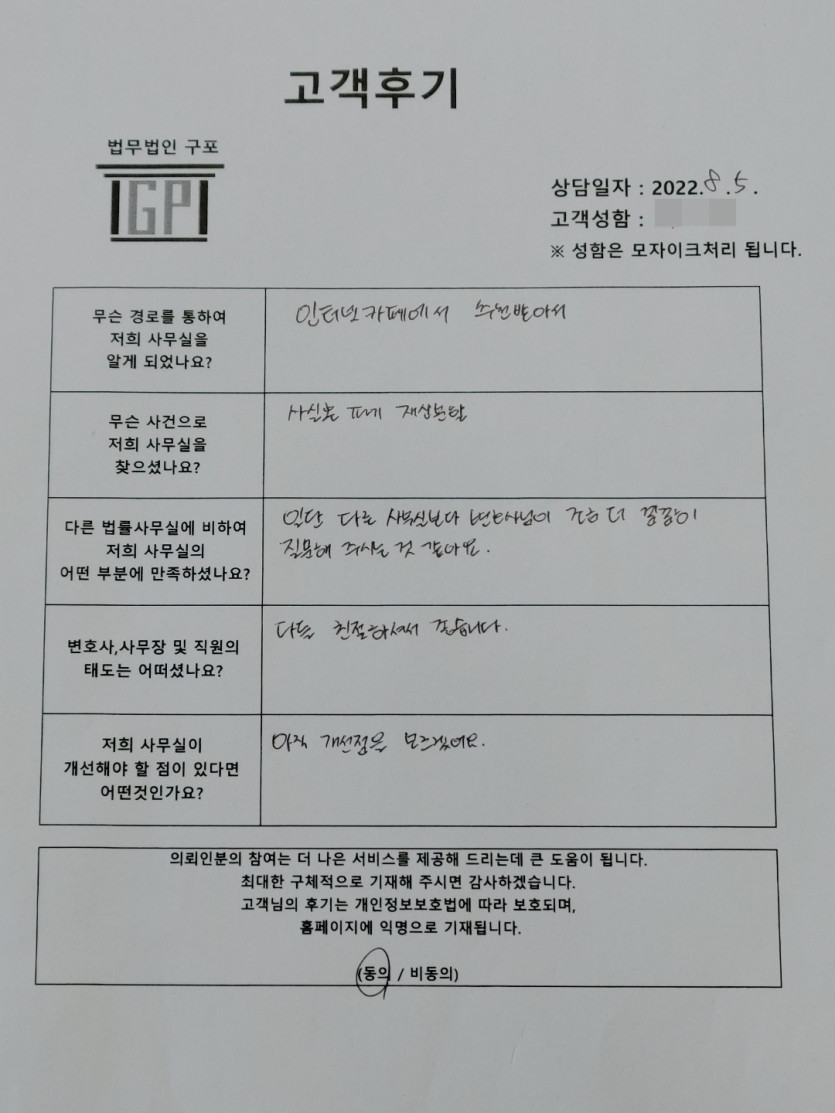 고객후기
법무법인 구포
IGPI
상담일자 : 2022.8.5.
고객성함 :
※ 성함은 모자이크처리 됩니다.
무슨 경로를 통하여
저희 사무실을
알게 되었나요?
인터넷카페에서 추천받아서
무슨 사건으로
저희 사무실을
찾으셨나요?
사실혼 파기 재산분할
다른 법률사무실에 비하여
저희 사무실의
어떤 부분에 만족하셨나요?
일단 다른 사무실보다 변호사님이 조금 더 꼼꼼이
질문해 주시는 것 같아요.
변호사,사무장 및 직원의
태도는 어떠셨나요?
다들 친절하셔서 좋습니다.
저희 사무실이
개선해야 할 점이 있다면
어떤것인가요?
아직 개선점은 모르겠어요.
의뢰인분의 참여는 더 나은 서비스를 제공해 드리는데 큰 도움이 됩니다.
최대한 구체적으로 기재해 주시면 감사하겠습니다.
고객님의 후기는 개인정보보호법에 따라 보호되며,
홈페이지에 익명으로 기재됩니다.
(동의 / 비동의)